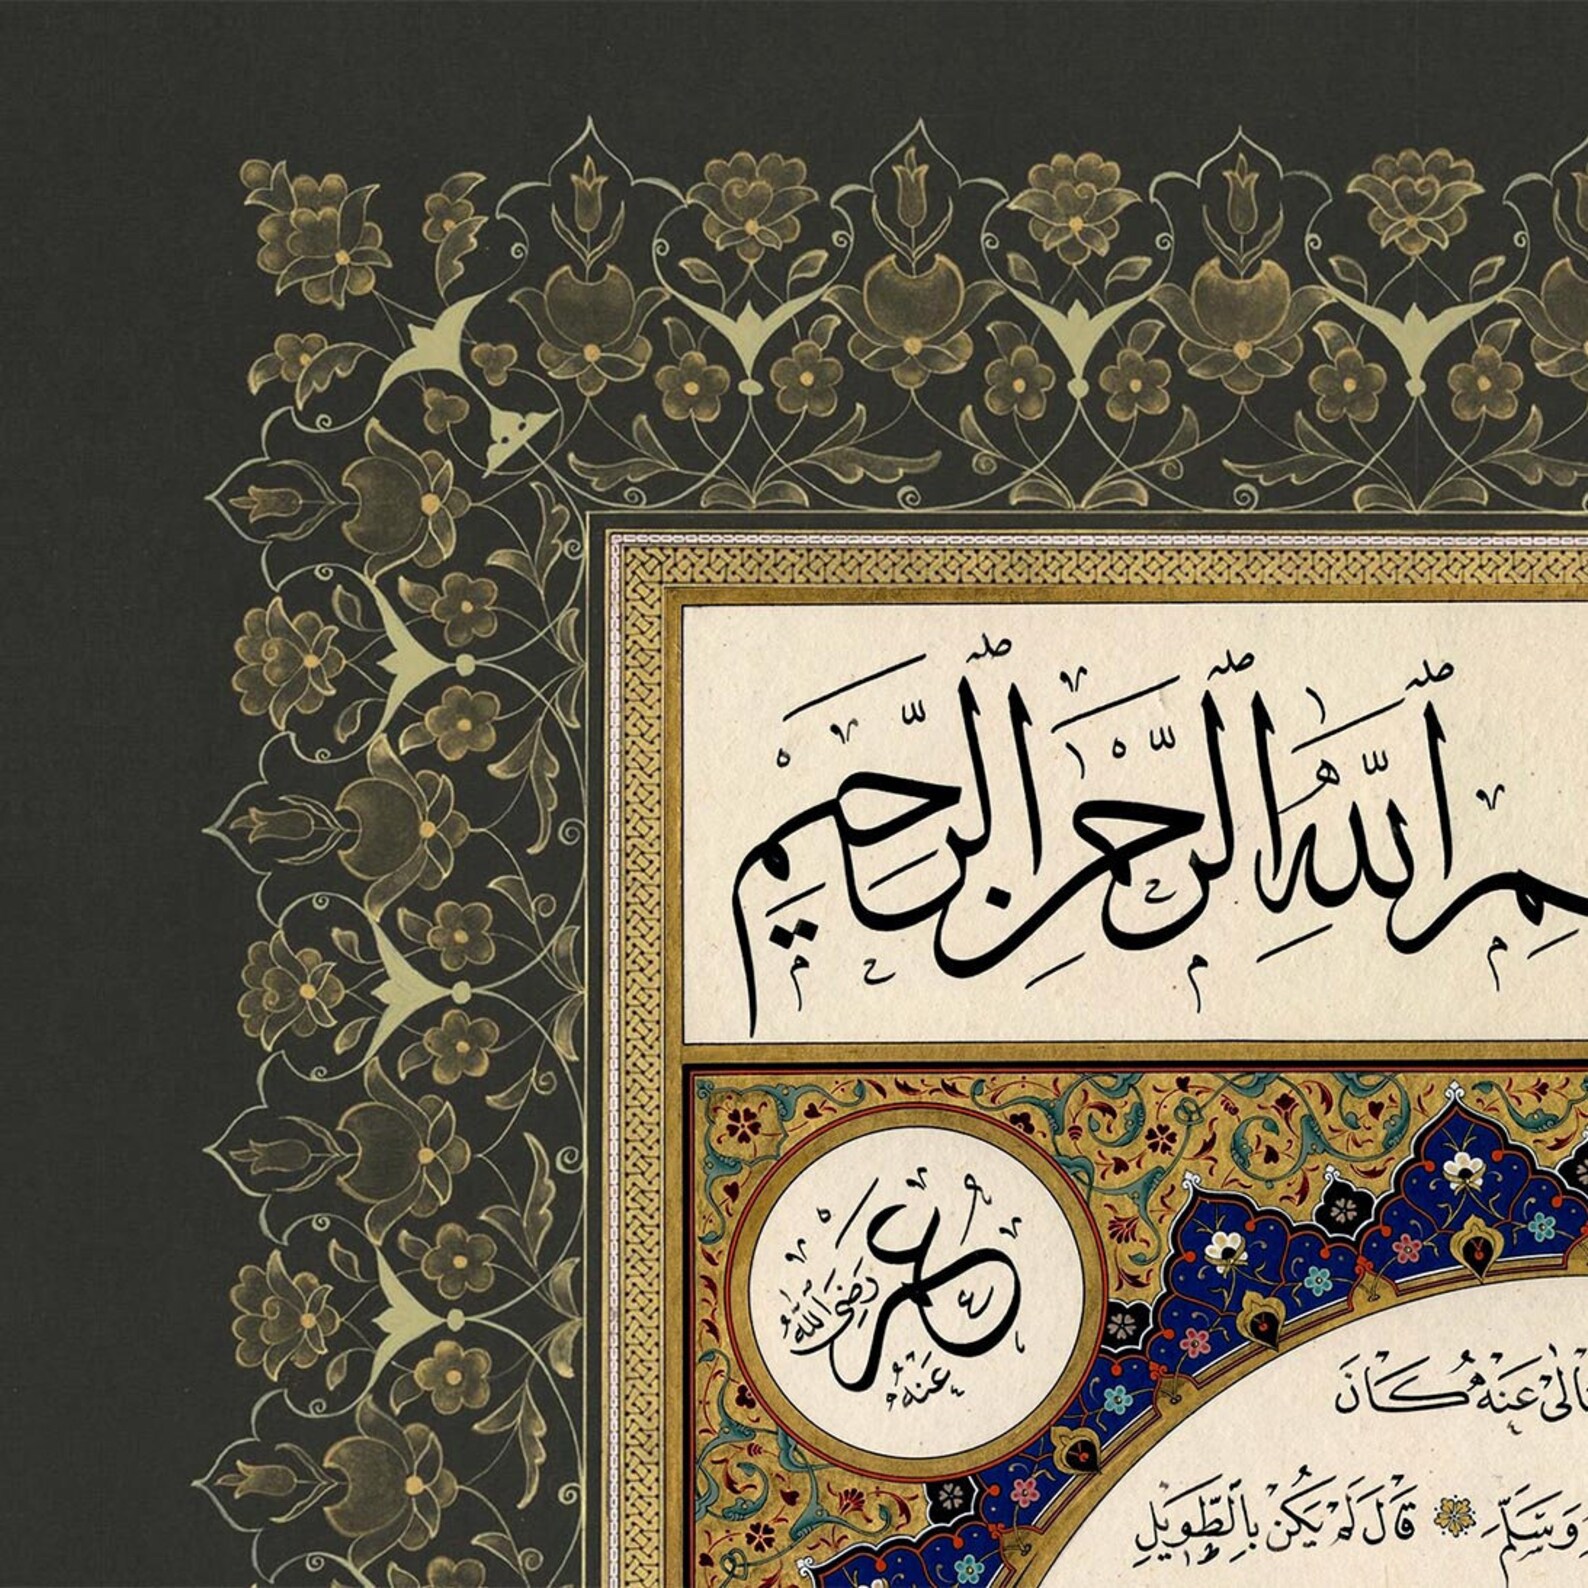 ـمِ ٱللّٰهِ ٱلرَّحْمٰنِ ٱلرَّحِيمِ
عُمَرُ
رَضِيَ ٱللّٰهُ
عَنْهُ
عَنْهُ كَانَ
وَسَلَّمَ قَالَ لَمْ يَكُنْ بِالطَّوِيلِ